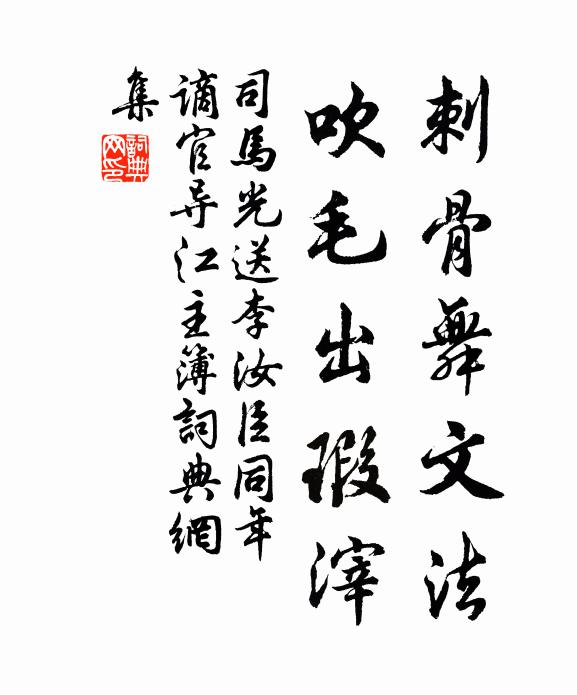 刺骨舞文法
吹毛出瑕滓
司馬光送李汝臣同年
谪官导江主簿詞典網
集
詞典
网印